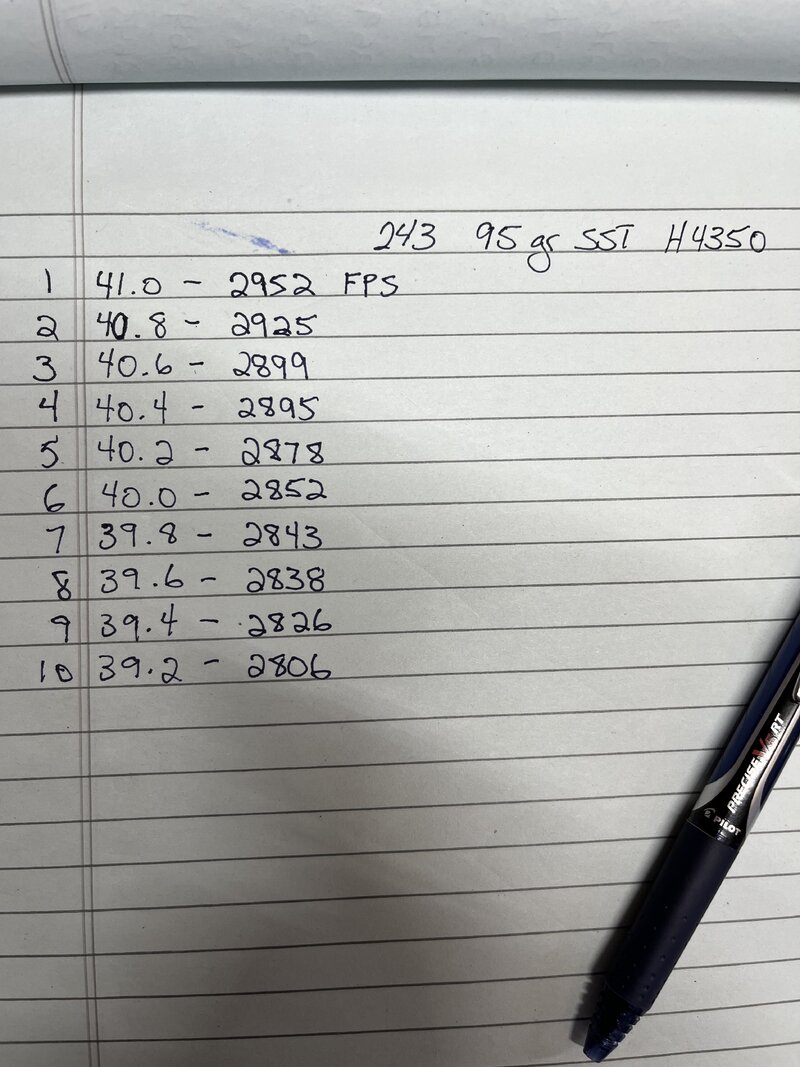 243 95 gr SST H4350
1 41.0 - 2952 FPS
2 40.8 - 2925
3 40.6 - 2899
4 40.4 - 2895
5 40.2 - 2878
6 40.0 - 2852
7 39.8 - 2843
8 39.6 - 2838
9 39.4 - 2826
10 39.2 - 2806
PRECISE V5 RT
PILOT